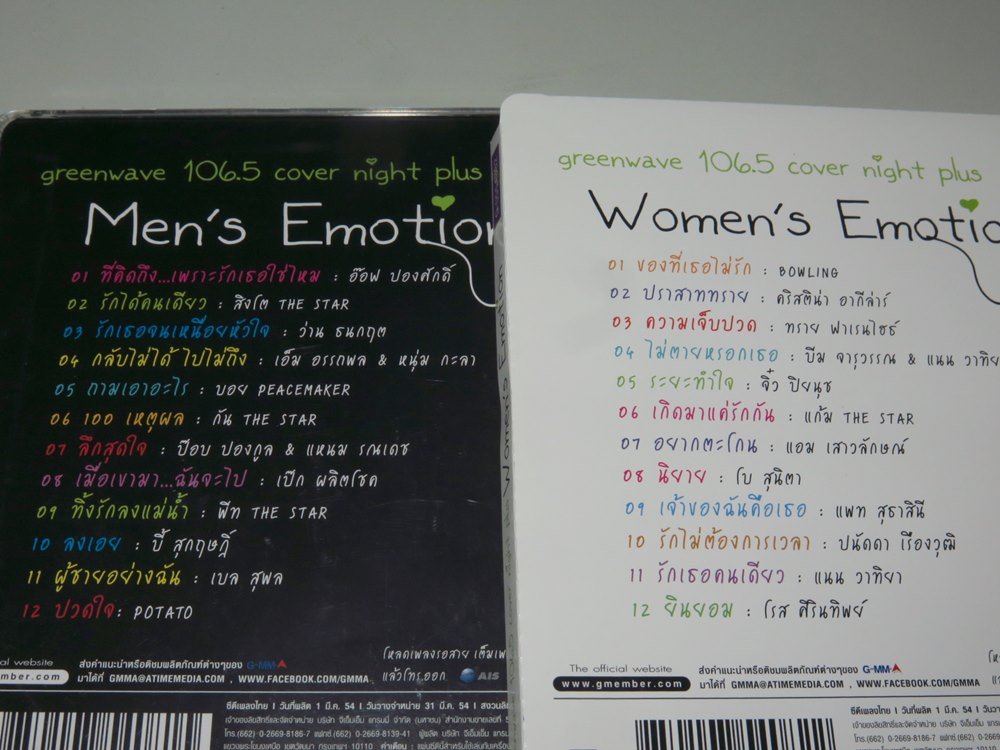 greenwave 106.5 cover night plus
Men's Emotion
01 ที่คิดถึง...เพราะรักเธอใช่ไหม : อ๊อฟ ปองศักดิ์
02 รักได้คนเดียว : สิงโต THE STAR
03 รักเธอจนเหนื่อยหัวใจ : ว่าน ธนกฤต
04 กลับไม่ได้ ไปไม่ถึง : เอ็ม อรรถพล & หนุ่ม กะลา
05 ถามเอาอะไร : บอย PEACEMAKER
06 100 เหตุผล : กัน THE STAR
07 ลึกสุดใจ : ป๊อบ ปองกูล & แหนม รณเดช
08 เมื่อเขามา...ฉันจะไป : เป๊ก ผลิตโชค
09 ทิ้งรักลงแม่น้ำ : พีท THE STAR
10 ลงเอย : บี้ สุกฤษฎิ์
11 ผู้ชายอย่างฉัน : เบล สุพล
12 ปวดใจ : POTATO
โหลดเพลงรอสาย เต็มเพ
แล้วโทร.ออก AIS
al website
mber.com
ส่งคำแนะนำหรือติชมผลิตภัณฑ์ต่างๆของ G-MMA
มาได้ที่ GMMA@ATIMEMEDIA.COM , WWW.FACEBOOK.COM/GMMA
ซีดีเพลงไทย | วันที่ผลิต 1 มี.ค. 54 | วันวางจำหน่าย 31 มี.ค. 54 | สงวนลิ
เจ้าของลิขสิทธิ์และจัดจำหน่าย บริษัท จีเอ็มเอ็ม แกรมมี่ จำกัด (มหาชน)
โทร.(662) 0-2669-8186-7 แฟกซ์.(662) 0-2669-8139-41
แขวงพระโขนงเหนือ เขตวัฒนา กรุงเทพฯ 10110
Women's Emotion
greenwave 106.5 cover night plus
Women's Emotio
01 ของที่เธอไม่รัก : BOWLING
02 ปราสาททราย : คริสติน่า อากีล่าร์
03 ความเจ็บปวด : ทราย ฟาเรนไฮธ์
04 ไม่ตายหรอกเธอ : บีม จารุวรรณ & แนน วาทิย
05 ระยะทำใจ : จิ๋ว ปิยนุช
06 เกิดมาแค่รักกัน : แก้ม THE STAR
07 อยากตะโกน : แอม เสาวลักษณ์
08 นิยาย : โบ สุนิตา
09 เจ้าของฉันคือเธอ : แพท สุธาสินี
10 รักไม่ต้องการเวลา : ปนัดดา เรืองวุฒิ
11 รักเธอคนเดียว : แนน วาทิยา
12 ยินยอม : โรส ศิรินทิพย์
The official website
www.gmember.com
ส่งคำแนะนำหรือติชมผลิตภัณฑ์ต่างๆของ G-MMA
มาได้ที่ GMMA@ATIMEMEDIA.COM , WWW.FACEBOOK.COM/GMMA
ซีดีเพลงไทย | วันที่ผลิต 1 มี.ค. 54 | วันวาง
เจ้าของลิขสิทธิ์และจัดจำหน่าย บริษัท จีเอ็มเอ็ม แกรม
โทร.(662) 0-2669-8186-7 แฟกซ์.(662) 0-2669-8